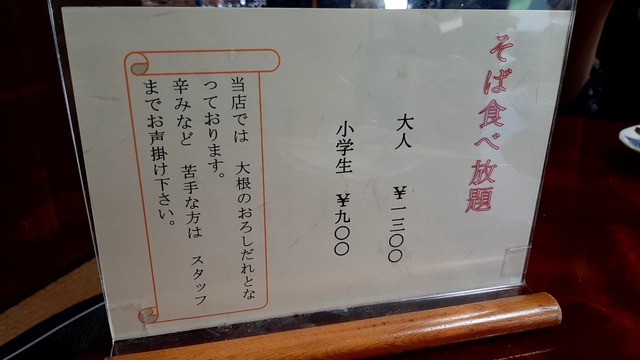 そば食べ放題
大人 ￥一三〇〇
小学生 ￥九〇〇
当店では 大根のおろしだれとな
っております。
辛みなど 苦手な方は スタッフ
までお声掛け下さい。